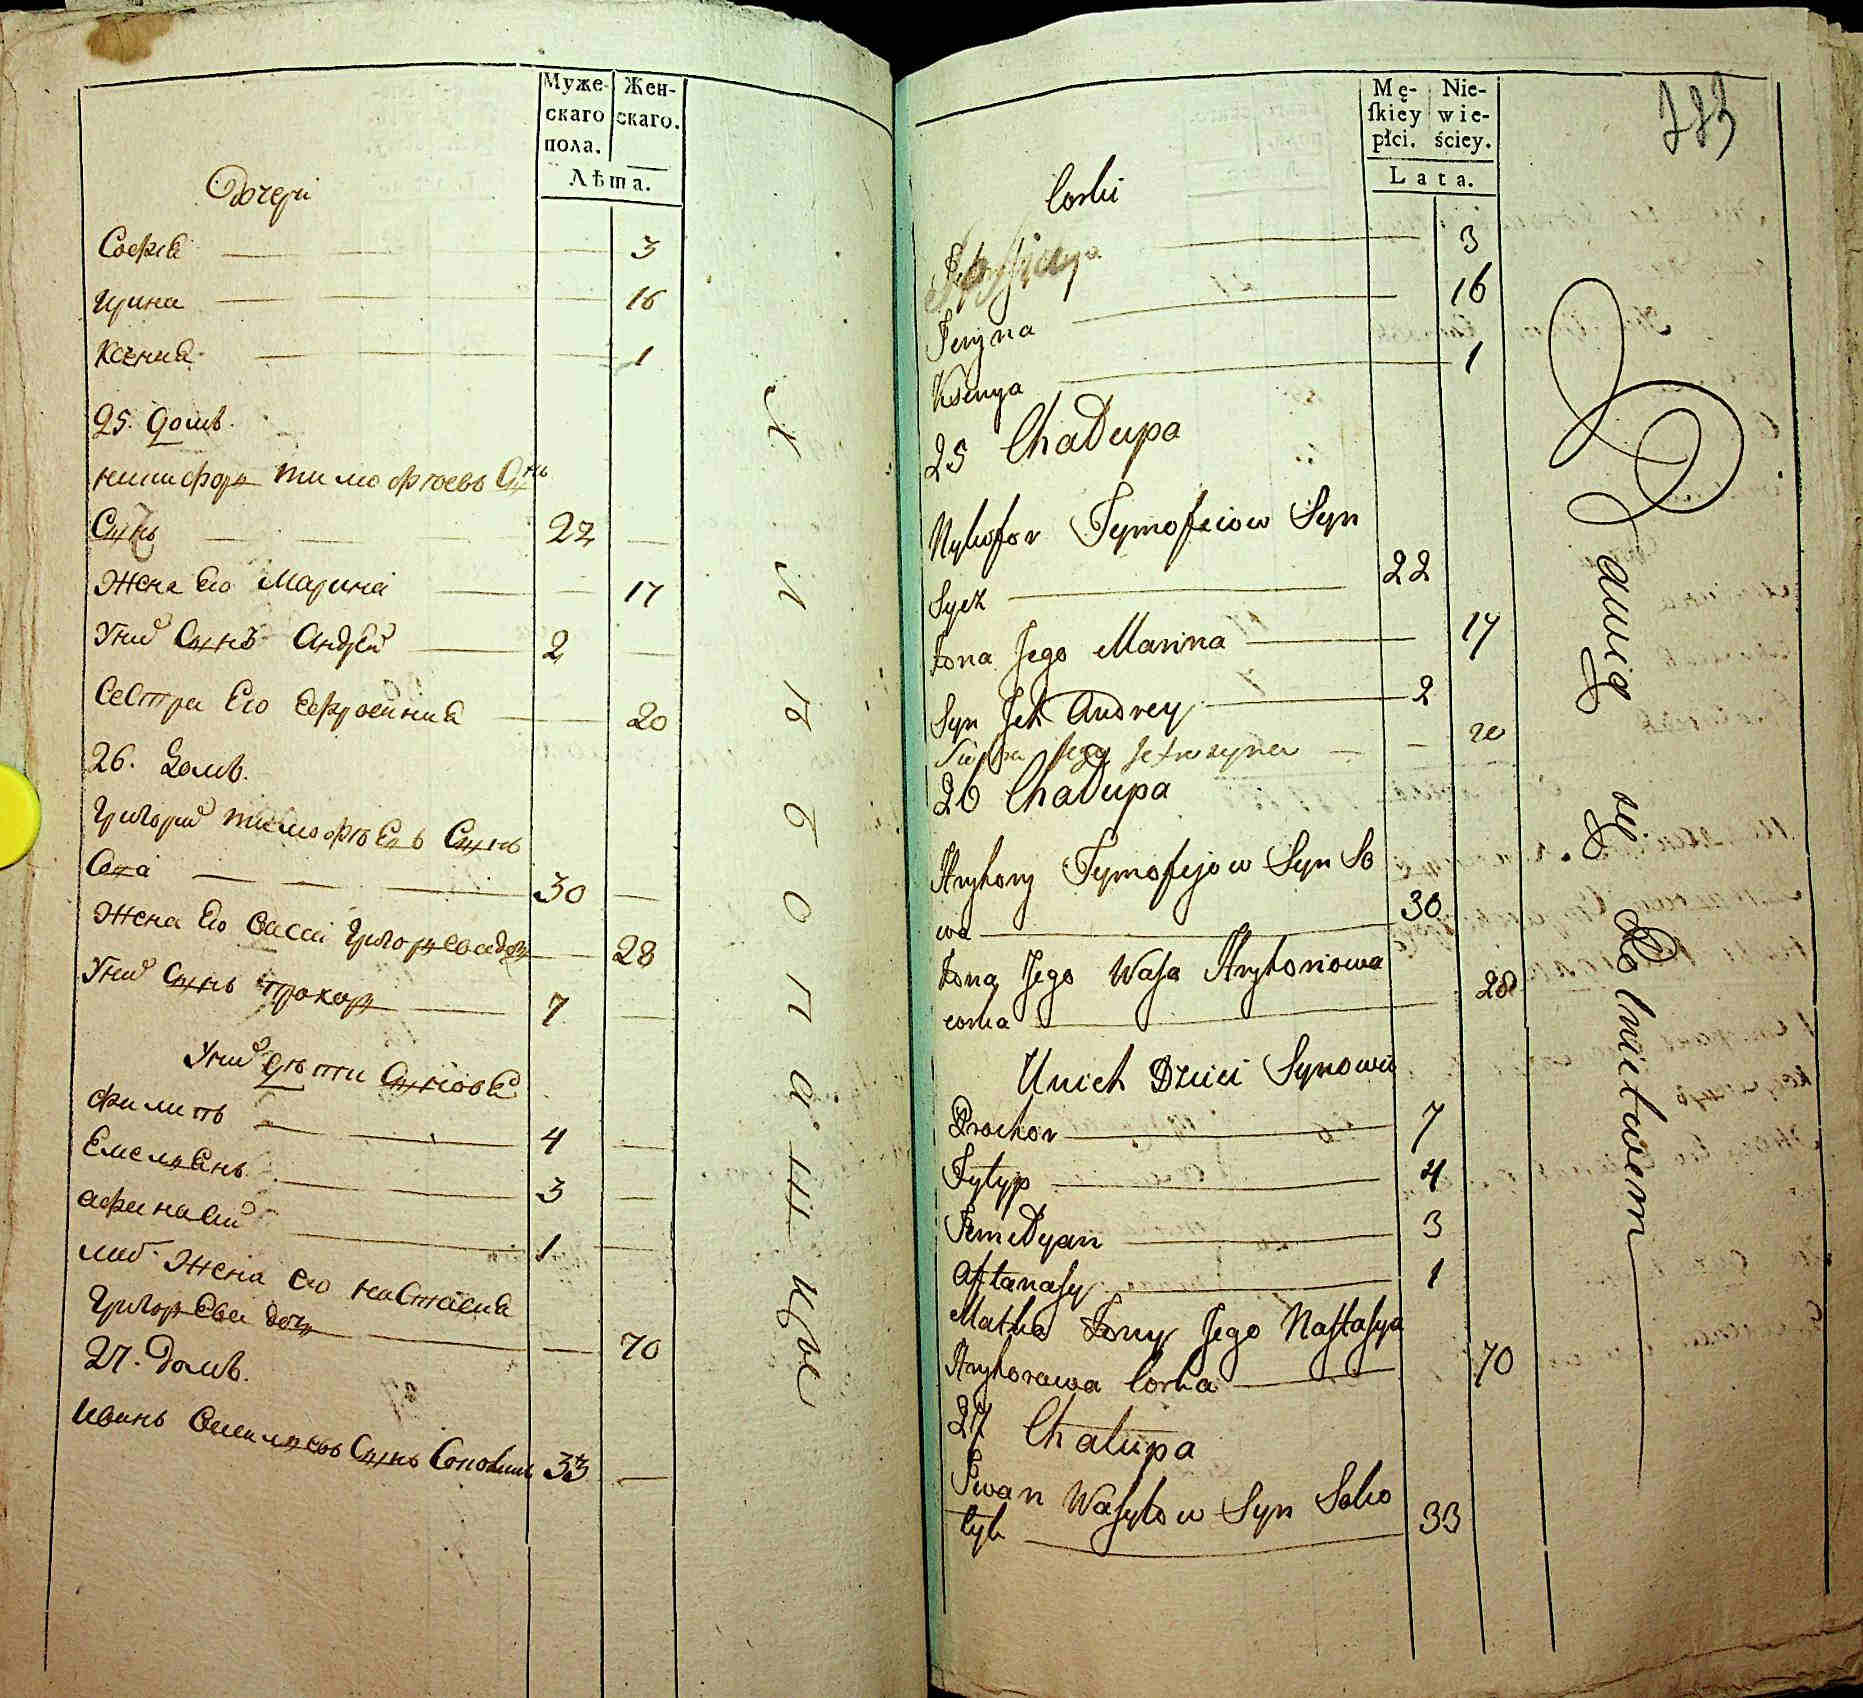 Муже-
скаго
пола.
Жен-
скаго.
Лѣта.
Дочери
София 3
Ирина 16
Ксения 1
25. домъ.
никифоръ тимофѣевъ Сынъ
Сычъ 22
Жена Его Марина 17
Унихъ Сынъ Андрей 2
Сестра Его Ефросиния 20
26. Домъ.
Григорий тимофѣевъ Сынъ
Сова 30
Жена Его Васса Григорьева дочь 28
Унихъ Сынъ прохоръ 7
Унихъ дѣти Сыновья
филипъ 4
Емельянъ 3
афанасий 1
мать Жены его настасия
Григорьева дочь 70
27. Домъ.
Иванъ Васильевъ Сынъ 33
Mę-
ſkiey
płci.
Nie-
wie-
ściey.
Lata.
Corki
3
Jeryna 16
Ksenya 1
25 Chałupa
Nykofor Tymofeiow Syn
Sycz 22
Żona Jego Marina 17
Syn Jch Andrey 2
Siostra Jego Jefrosyna 20
26 Chałupa
Hryhory Tymofejow Syn So
wa 30
Żona Jego Waſa Hryhoriowa
corka 28
Unich Dzieci Synowie
Prochor 7
Fylyp 4
Jemełyan 3
Aftanaſy 1
Matka Żony Jego Naſtaſya
Hryhorowa Corka 70
27 Chałupa
Jwan Waſylow Syn Soko
lyk 33
хлѣбопашцы
Bawią się Rolnictwem